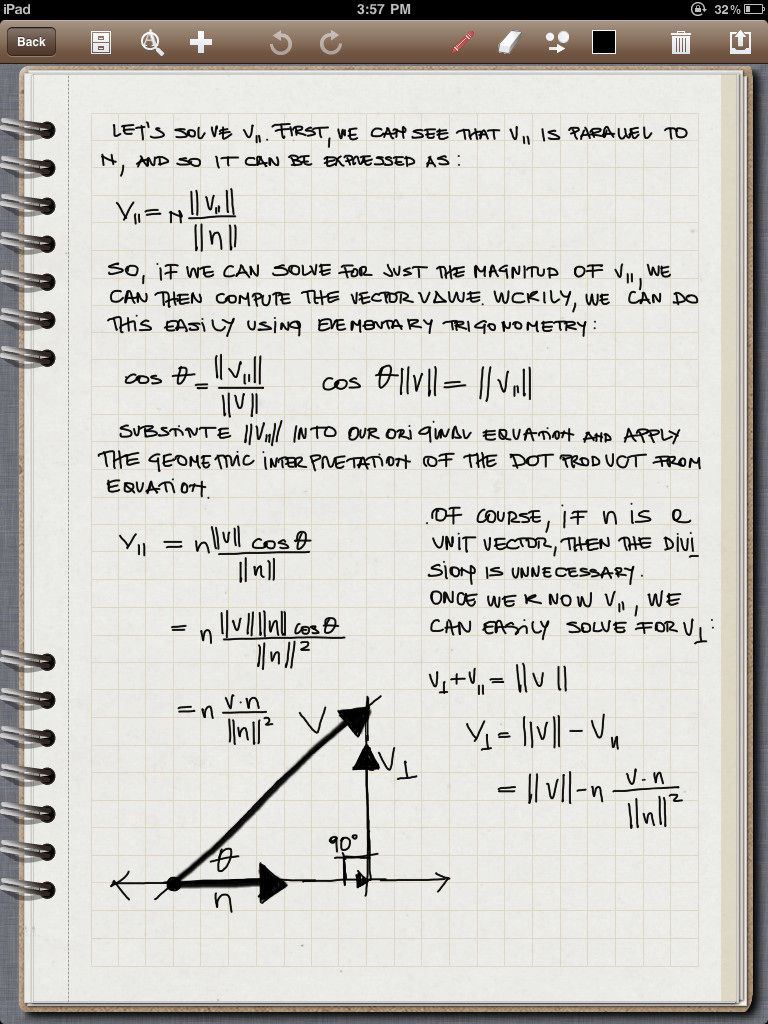 iPad 3:57 PM 32%
Back
LET'S SOLVE V||. FIRST, WE CAN SEE THAT V|| IS PARALLEL TO
N, AND SO IT CAN BE EXPRESSED AS:
V|| = N ||V||||
||n||
SO, IF WE CAN SOLVE FOR JUST THE MAGNITUD OF V||, WE
CAN THEN COMPUTE THE VECTOR VALUE. WCKILY, WE CAN DO
THIS EASILY USING ELEMENTARY TRIGONOMETRY:
cos θ = ||V||||
||V||
cos θ||V|| = ||V||||
SUBSTINTE ||V|||| INTO OUR ORIGINAL EQUATION AND APPLY
THE GEOMETRIC INTERPRETATION OF THE DOT PRODUCT FROM
EQUATION.
V|| = n ||V|| cos θ
||n||
= n ||V|| ||n|| cos θ
||n||²
= n V·n
||n||²
.OF COURSE, IF n IS a
UNIT VECTOR, THEN THE DIVI
SION IS UNNECESSARY.
ONCE WE KNOW V||, WE
CAN EASILY SOLVE FOR V⊥:
V⊥ + V|| = ||V||
V⊥ = ||V|| - Vn
= ||V|| - n V·n
||n||²
V
V⊥
90°
θ
n